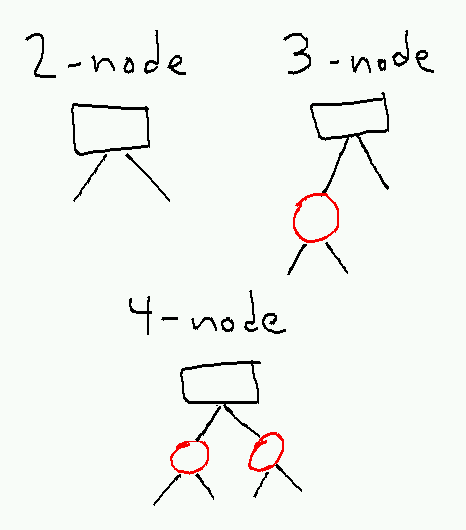 2-node
3-node
4-node